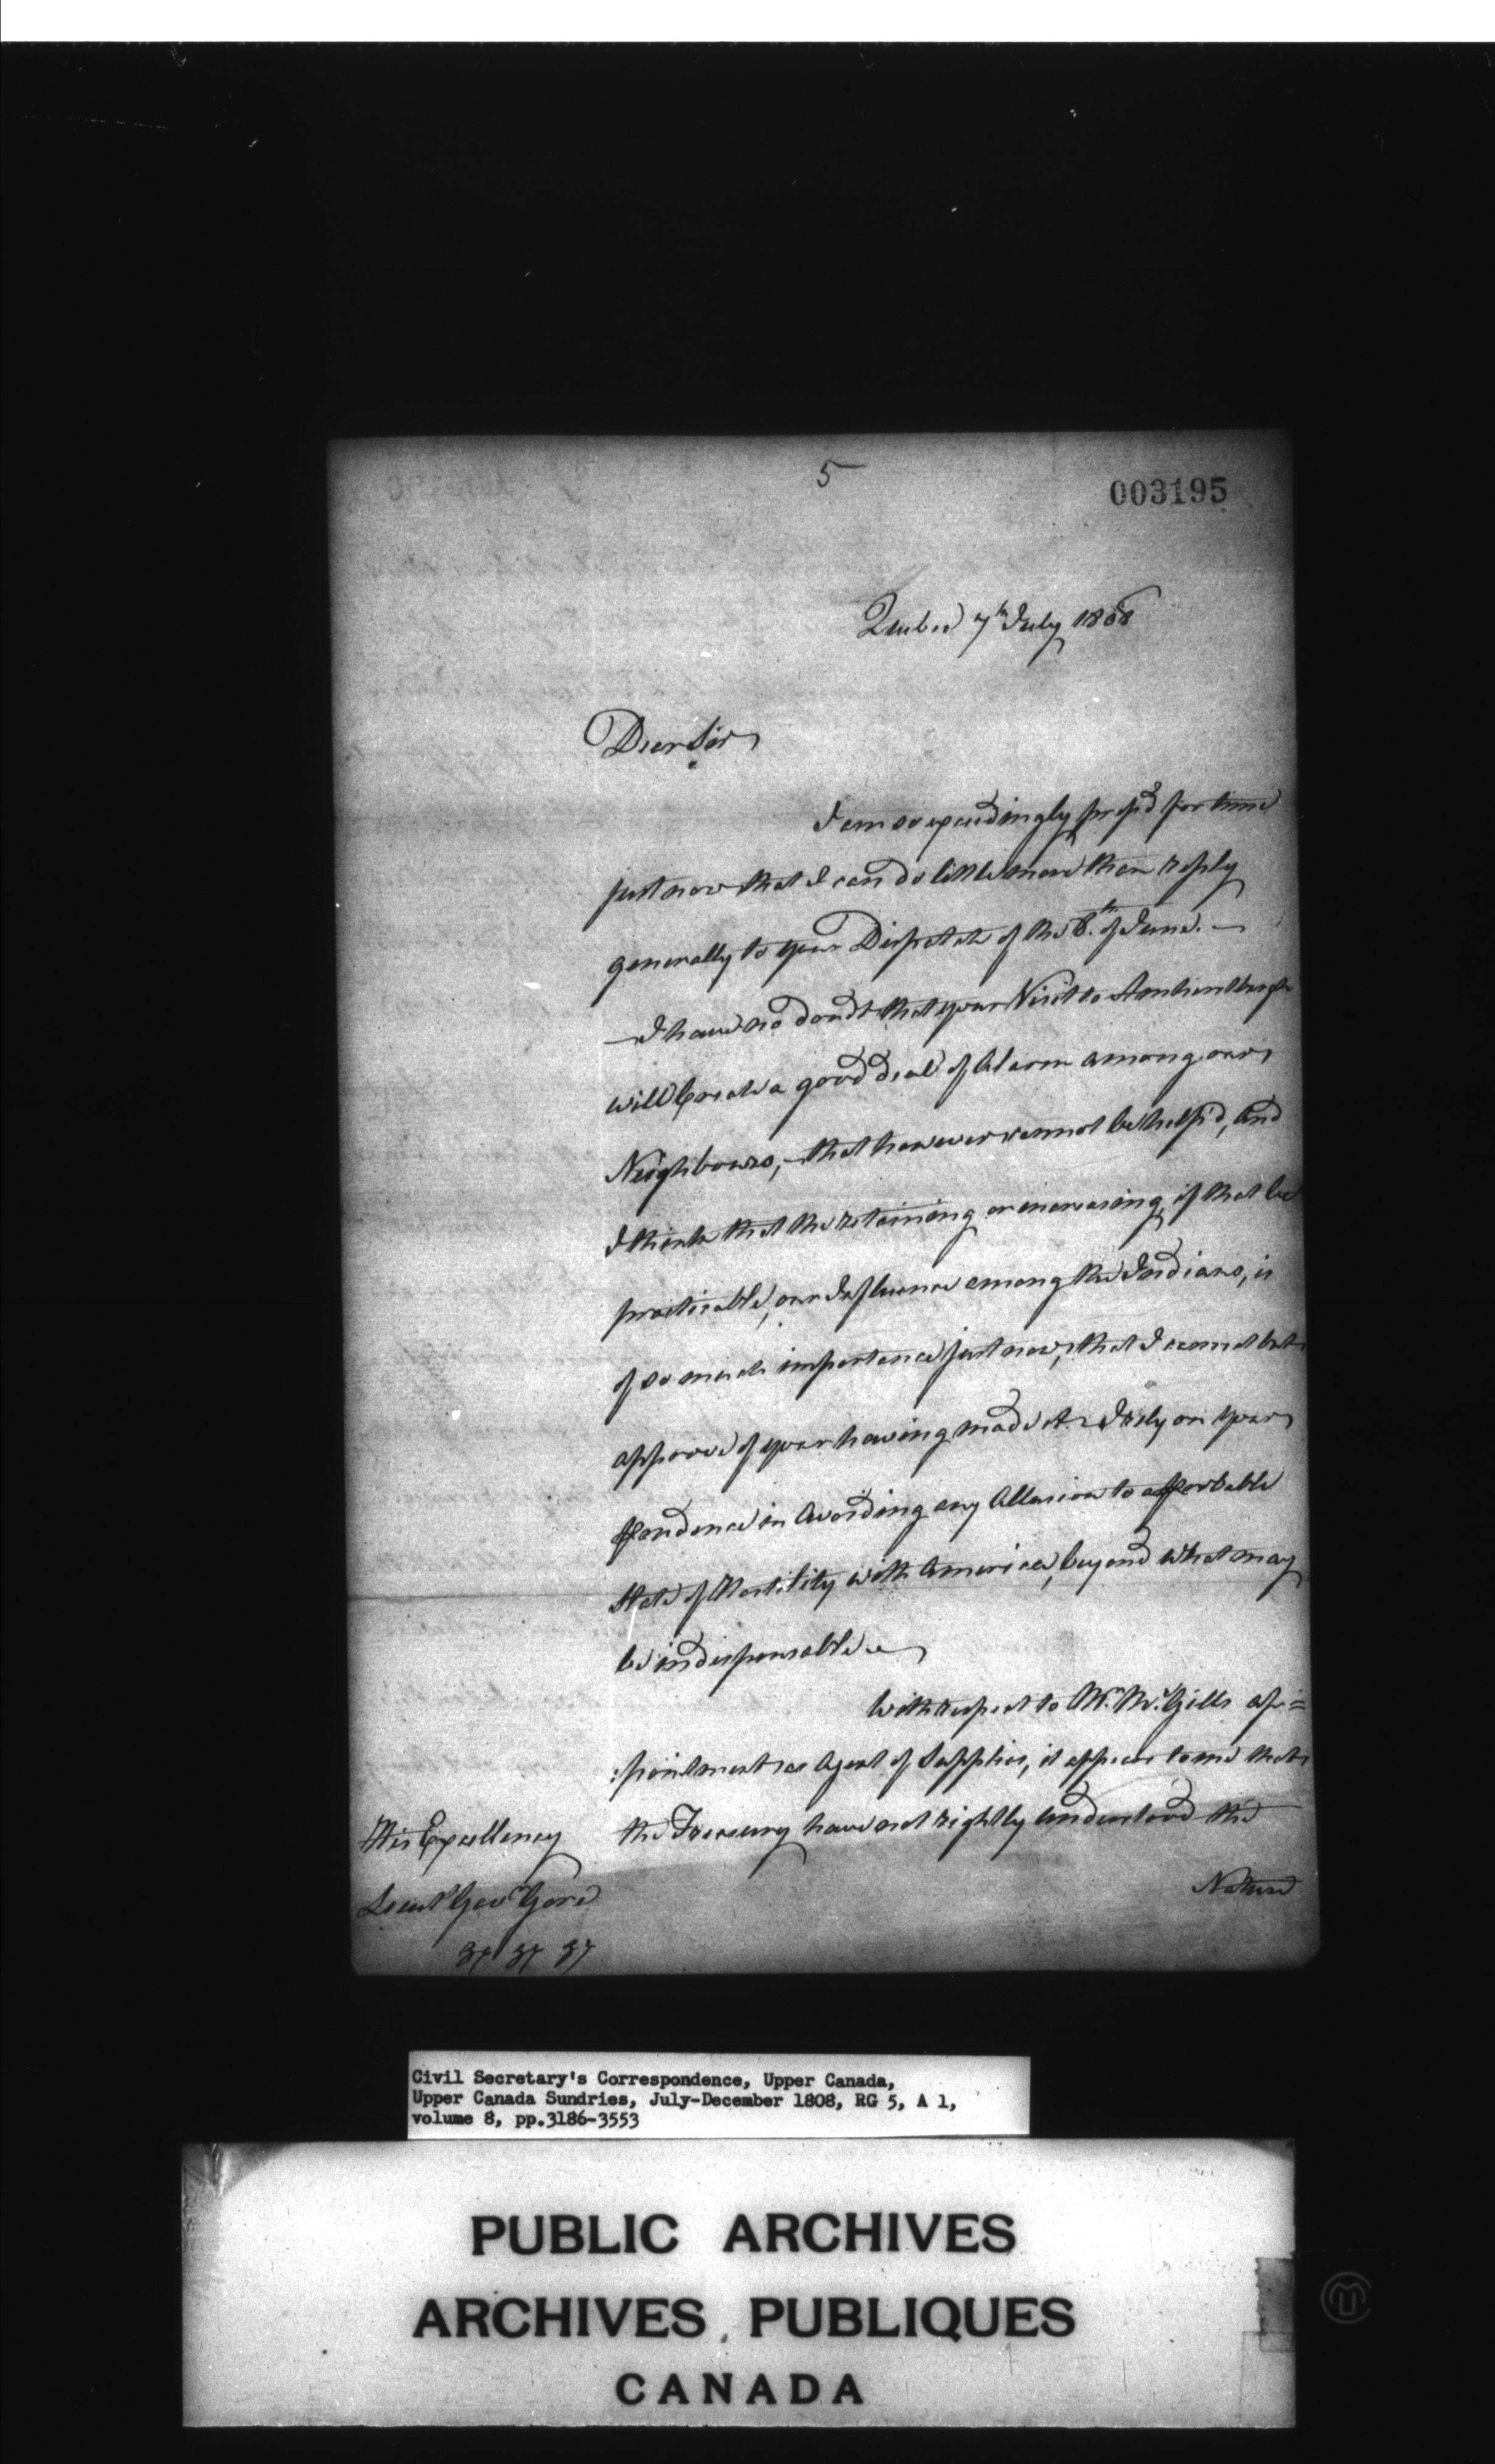 5
003195
Quebec 7th July 1808
Dear Sir
I am so exceedingly press'd for time
just now that I can do little more than reply
generally to your Dispatch of the 8th. of June. —
— I have no doubt that your Visit to Amherstburgh
will Create a good deal of Alarm among our
Neighbours, — that however cannot be help'd, And
I think that the retaining or increasing, if that be
practicable, our Influence among the Indians, is
of so much importance just now, that I cannot but
approve of your having made it. — I rely on your
Prudence in Avoiding any Allusion to a Probable
State of Hostility with America, beyond what may
be indispensable. —
With respect to Mr. McGills ap=
:pointment as Agent of Supplies, it appears to me that
the Treasury have not rightly understood the
Nature
His Excellency
Lieut Govr Gore
&c &c &c
Civil Secretary's Correspondence, Upper Canada,
Upper Canada Sundries, July-December 1808, RG 5, A 1,
volume 8, pp.3186-3553
PUBLIC ARCHIVES
ARCHIVES PUBLIQUES
CANADA